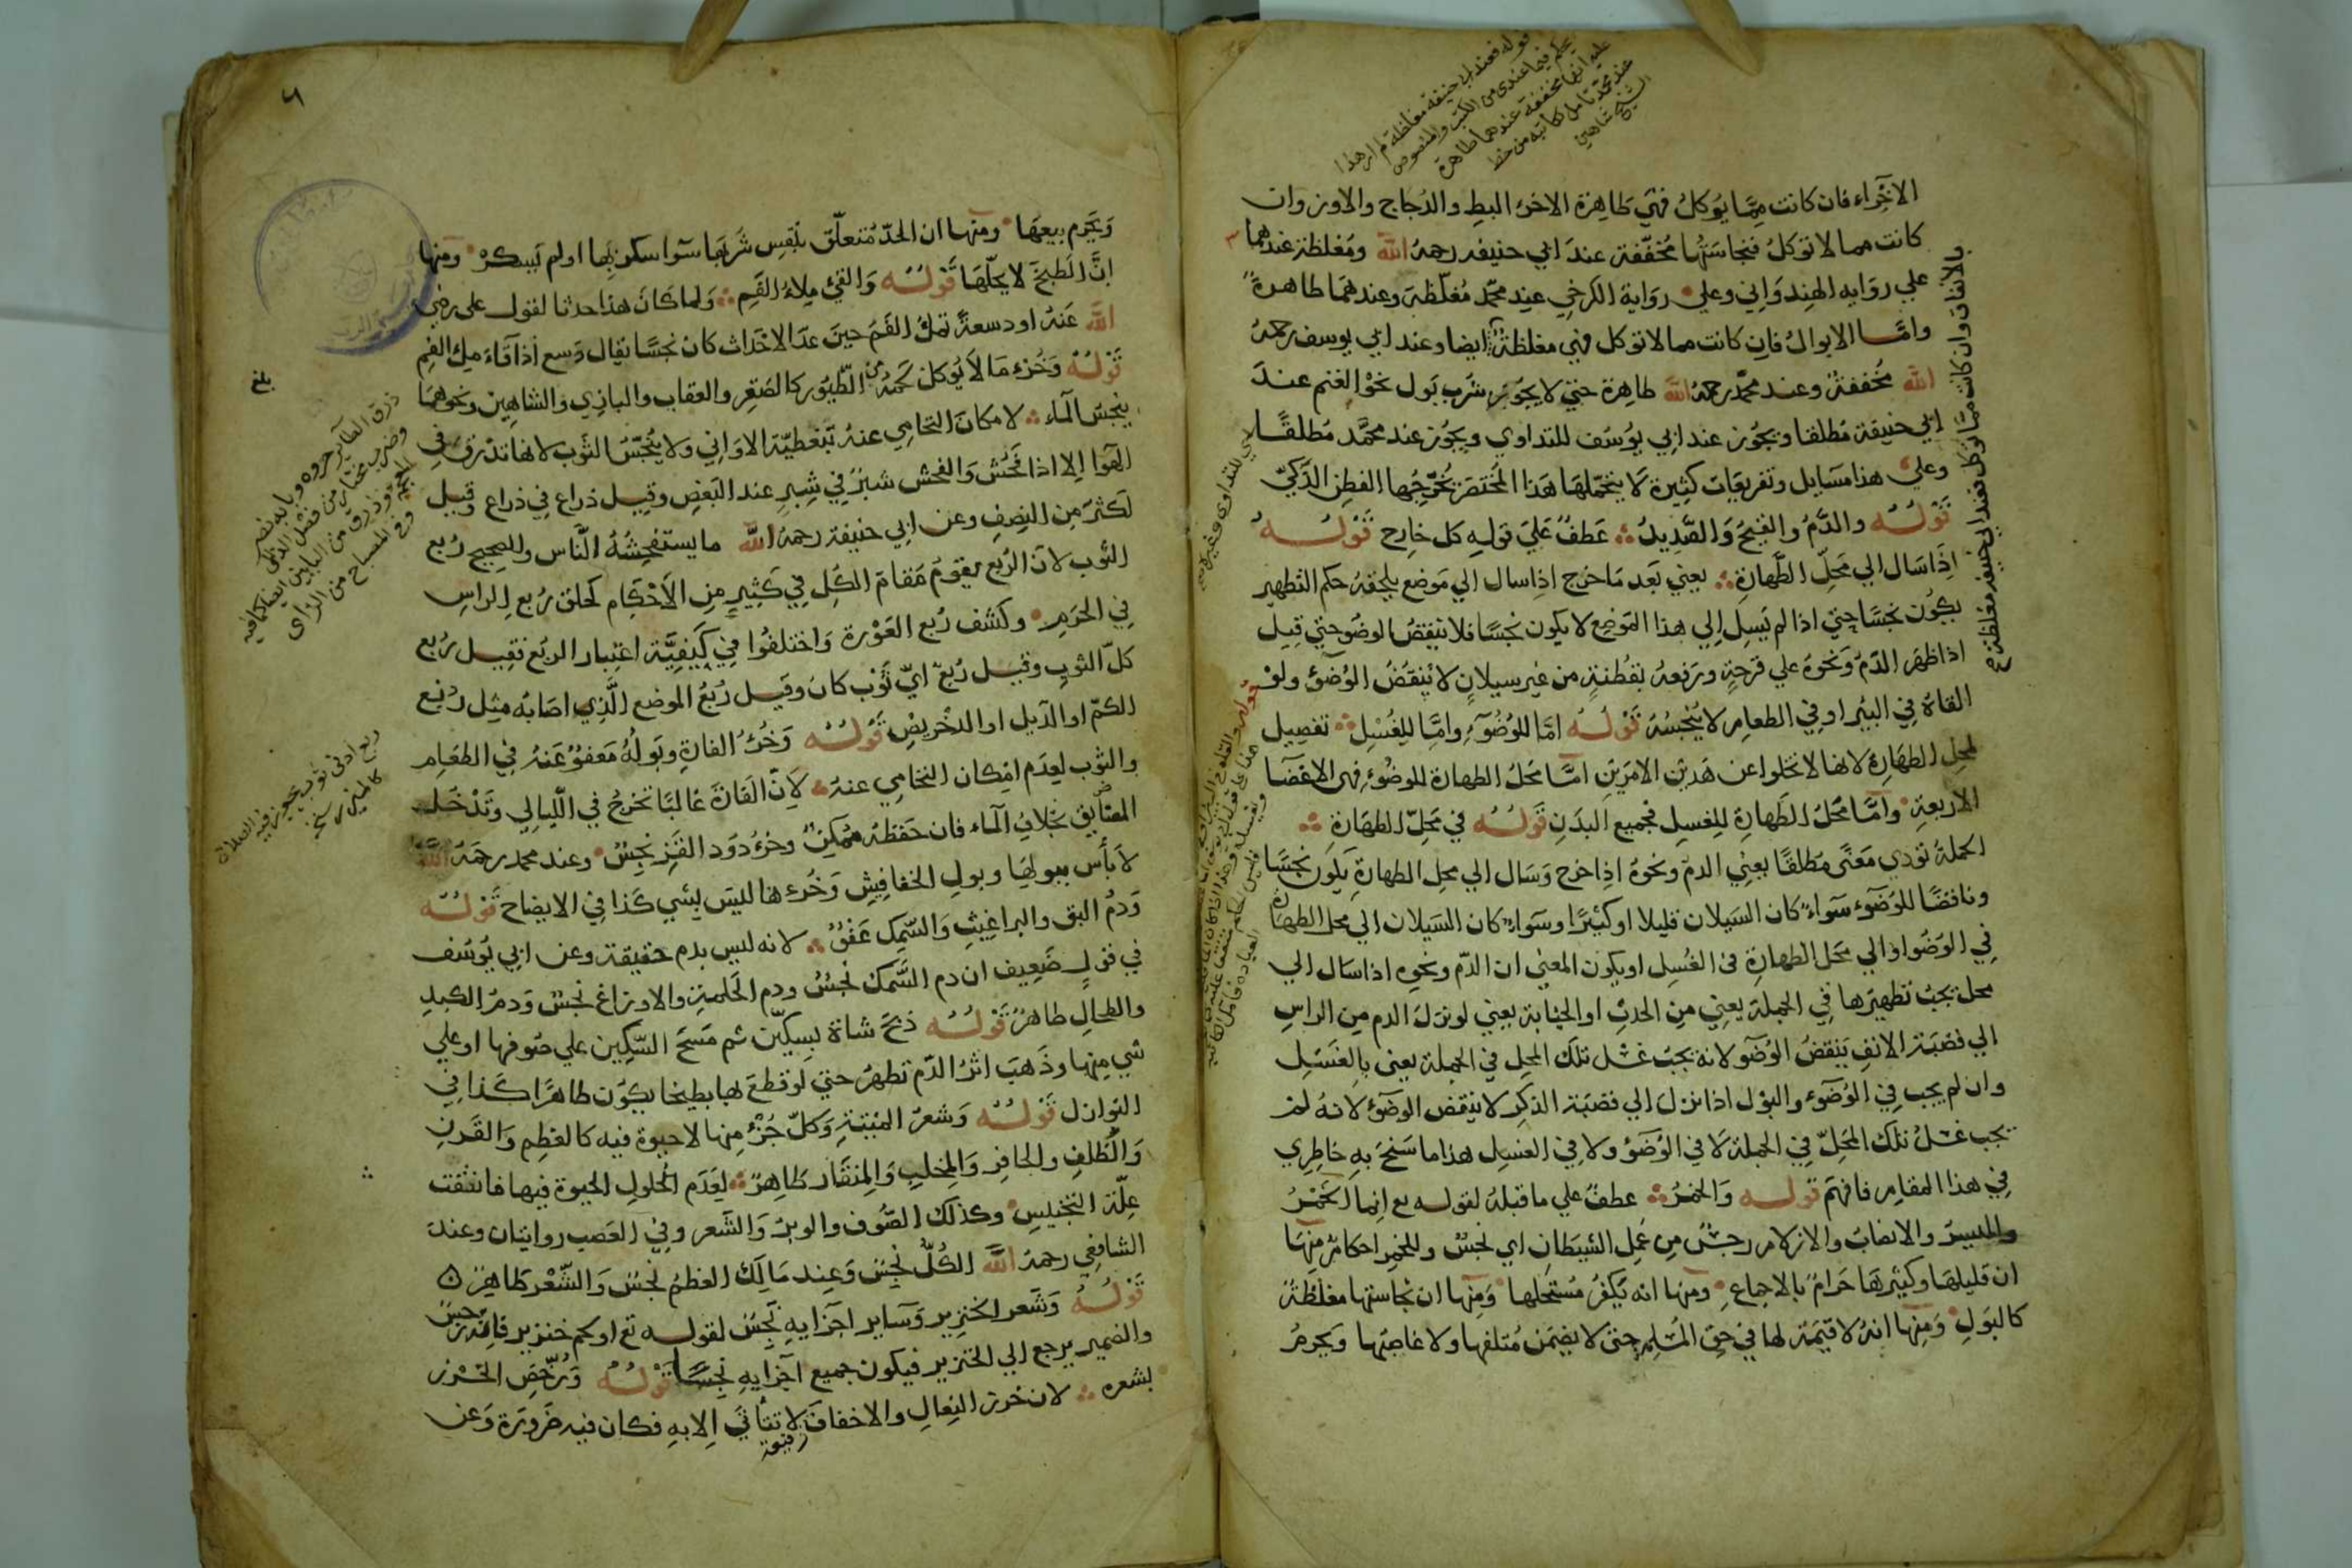 الاخراء فان كانت مما يوكل فهي طاهرة الا خرء البط والدجاج والاوز وان
كانت مما لا توكل فنجاستها مخففة عند ابي حنيفه رحمه الله ومغلظة عندهما
علي روايه الهندواني وعلي رواية الكرخي عند محمد مغلظة وعندهما طاهرة
واما الابوال فان كانت مما لا توكل فهي مغلظة ايضا وعند ابي يوسف رحمه
الله مخففة وعند محمد رحمه الله طاهرة حتي لا يجوز شرب بول نحو الغنم عند
ابي حنيفة مطلقا ويجوز عند ابي يوسف للتداوي ويجوز عند محمد مطلقا
وعلي هذا مسايل وتفريعات كثيرة لا يتحملها هذا المختصر يخرجها الفطن الذكي
قوله والدم والقيح والصديد عطف علي قوله كل خارج قوله
اذا سال الي محل الطهارة يعني بعد ما خرج اذا سال الي موضع يلحقه حكم التطهير
يكون نجسا حتي اذا لم يسل الي هذا الموضع لا يكون نجسا فلا ينقض الوضو حتي قيل
اذا ظهر الدم ونحوه علي قرحة ورفعه بقطنة من غير سيلان لا ينقض الوضوء ولو
القاه في البير او في الطعام لا ينجسه قوله اما للوضوء واما للغسل تفصيل
لمحل الطهارة لانها لا تخلوا عن هذين الامرين اما محل الطهارة للوضوء فهي الاعضا
الاربعة واما محل الطهارة للغسل فجميع البدن قوله في محل الطهارة
الجملة تودي معني مطلقا يعني الدم ونحوه اذا خرج وسال الي محل الطهارة يكون نجسا
وناقضا للوضوء سواء كان السيلان قليلا او كثيرا وسواء كان السيلان الي محل الطهارة
في الوضو او الي محل الطهارة في الغسل او يكون المعني ان الدم ونحوه اذا سال الي
محل يجب تطهيرها في الجملة يعني من الحدث او الجنابة يعني لو نزل الدم من الراس
الي قصبة الانف ينقض الوضو لانه يجب غسل تلك المحل في الجملة يعني بالغسل
وان لم يجب في الوضوء والبول اذا نزل الي قصبة الذكر لا ينقض الوضوء لانه لم
يجب غسل تلك المحل في الجملة لا في الوضوء ولا في الغسل هذا ما سنح به خاطري
في هذا المقام فافهم قوله والخمر عطف علي ما قبله لقوله تع انما الخمر
والميسر والانصاب والازلام رجس من عمل الشيطان اي نجس وللخمر احكام منها
ان قليلها وكثيرها حرام بالاجماع ومنها انه يكفر مستحلها ومنها ان نجاستها مغلظة
كالبول ومنها انه لا قيمة لها في حق المسلم حتي لا يضمن متلفها ولا غاصبها ويحرم
بالاتفاق وان كانت مما توكل فعند ابي حنيفه مغلظة صح
قوله فعند ابي حنيفة مغلظة
عند محمد تامل كاتبه من خط
الشيخ شاهين
٦
ويحرم بيعها ومنها ان الحد متعلق بنفس شربها سوا سكر بها او لم يسكر ومنها
ان الطبخ لا يحلها قوله والقيء ملاء الفم ولما كان هذا حدثا لقول علي رضي
الله عنه او دسعة تملا الفم حين عد الاحداث كان نجسا يقال دسع اذا قاء ملء الفم
قوله وخرء ما لا يوكل لحمه من الطيور كالصقر والعقاب والبازي والشاهين ونحوها
ينجس الماء لا مكان التحامي عنه بتغطية الاواني ولا ينجس الثوب لانها تذرق في
الهوا الا اذا فحش والفحش شبر في شبر عند البعض وقيل ذراع في ذراع وقيل
لكثر من النصف وعن ابي حنيفة رحمه الله ما يستفحشه الناس والصحيح ربع
الثوب لان الربع يقوم مقام الكل في كثير من الاحكام كحلق ربع الراس
في الحرم وكشف ربع العورة واختلفوا في كيفية اعتبار الربع فقيل ربع
كل الثوب وقيل ربع اي ثوب كان وقيل ربع الموضع الذي اصابه مثل ربع
الكم او الذيل او الدخريض قوله وخرء الفارة وبوله معفو عنه في الطعام
والثوب لعدم امكان التحامي عنه لان الفارة غالبا تخرج في الليالي وتدخل
المضايق بخلاف الماء فان حفظه ممكن وخرء دود القز نجس وعند محمد رحمه الله
لا بأس ببولها وبول الخفافيش وخرءها لليس بشي كذا في الايضاح قوله
ودم البق والبراغيث والسمك عفو لانه ليس بدم حقيقة وعن ابي يوسف
في قول ضعيف ان دم السمك نجس ودم الحلمة والاوزاغ نجس ودم الكبد
والطحال طاهر قوله ذبح شاة بسكين ثم مسح السكين علي صوفها او علي
شي منها وذهب اثر الدم تطهر حتي لو قطع بها بطيخا يكون طاهرا كذا في
النوازل قوله وشعر الميتة وكل جزء منها لا حيوة فيه كالعظم والقرن
والظلف والحافر والمخلب والمنقار طاهر لعدم الحلول الحيوة فيها فانتفت
علة التنجيس وكذلك الصوف والوبر والشعر وفي العصب روايتان وعند
الشافعي رحمه الله الكل نجس وعند مالك العظم نجس والشعر طاهر
قوله وشعر الخنزير وساير اجزايه نجس لقوله تع او لحم خنزير فانه رجس
والضمير يرجع الي الخنزير فيكون جميع اجزايه نجسا قوله ورخص الخرز
بشعره لان خرز النعال والاخفاف لا تتأتي الا به فكان فيه ضرورة وعن
بلغ
ربع ادنى ثوب يجوز فيه الصلاة